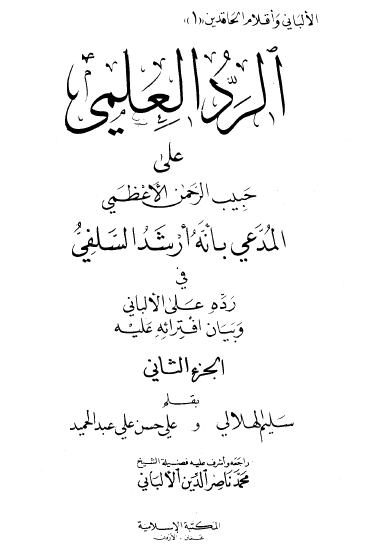 الألباني وأقلام الحاقدين «١»
الرد العلمي
على
حبيب الرحمن الأعظمي
المدعي بأنه أرشد السلفي
في
رده على الألباني
وبيان افترائه عليه
الجزء الثاني
بقلم
سليم الهلالي و علي حسن علي عبد الحميد
راجعه وأشرف عليه فضيلة الشيخ
محمد ناصر الدين الألباني
المكتبة الإسلامية
عمان - الأردن